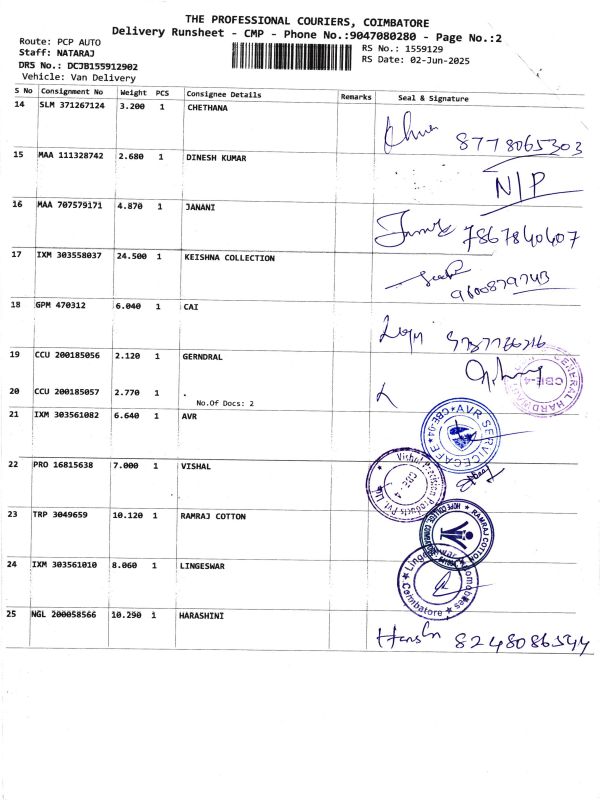 THE PROFESSIONAL COURIERS, COIMBATORE
Delivery Runsheet - CMP - Phone No.:9047080280 - Page No.:2
Route: PCP AUTO
Staff: NATARAJ
DRS No.: DCJB155912902
Vehicle: Van Delivery
RS No.: 1559129
RS Date: 02-Jun-2025
S No Consignment No Weight PCS Consignee Details Remarks Seal & Signature
14 SLM 371267124 3.200 1 CHETHANA
8778065303
15 MAA 111328742 2.680 1 DINESH KUMAR
N/P
16 MAA 707579171 4.870 1 JANANI
7867840407
17 IXM 303558037 24.500 1 KEISHNA COLLECTION
9600879743
18 GPM 470312 6.040 1 CAI
19 CCU 200185056 2.120 1 GERNDRAL
GENERAL HARDWA
CBE-4
20 CCU 200185057 2.770 1 .
No.Of Docs: 2
21 IXM 303561082 6.640 1 AVR
AVR SERVICE CAFE
CBE-04
22 PRO 16815638 7.000 1 VISHAL
Vishal Precision Products Pvt. Ltd
CBE-4
23 TRP 3049659 10.120 1 RAMRAJ COTTON
RAMRAJ COTTON
24 IXM 303561010 8.060 1 LINGESWAR
Coimbatore
25 NGL 200058566 10.290 1 HARASHINI
8248086544